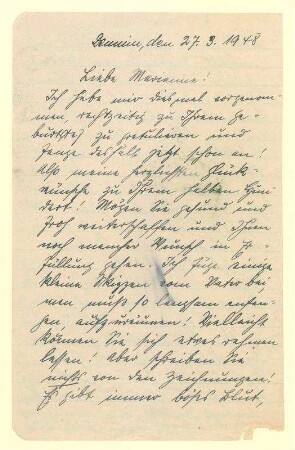 Demmin, den 27. 3. 1948
Liebe Marianne!
Ich habe mir diesmal vorgenom-
men, rechtzeitig zu Ihrem Ge-
burtstag zu gratulieren und
fange deshalb jetzt schon an!
Also meine herzlichsten Glück-
wünsche zu Ihrem halben Hun-
dert! Mögen Sie gesund und
froh weiterschaffen und Ihnen
noch mancher Wunsch in Er-
füllung gehen. Ich füge einige
kleine Skizzen vom Vater bei
man muß so langsam anfan-
gen, aufzuräumen! Vielleicht
können Sie sich etwas rahmen
lassen! Aber schreiben Sie
nichts von den Zeichnungen!
Es gibt immer böses Blut,